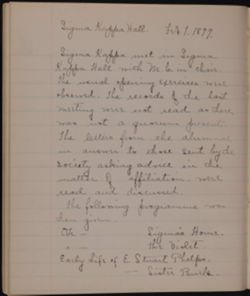 Sigma Kappa Hall. Feb. 1. 1899.
Sigma Kappa met in Sigma
Kappa Hall with M. E. in chair.
The usual opening exercises were
observed. The records of the last
meeting were not read as there
was not a quorum present.
The letters from the alumnae
in answer to those sent by the
society asking advice in the
matter of affiliation were
read and discussed.
The following programme was
then given.
Sigma's Home.
The Violet
Early Life of E. Stuart Phelps.
Sister